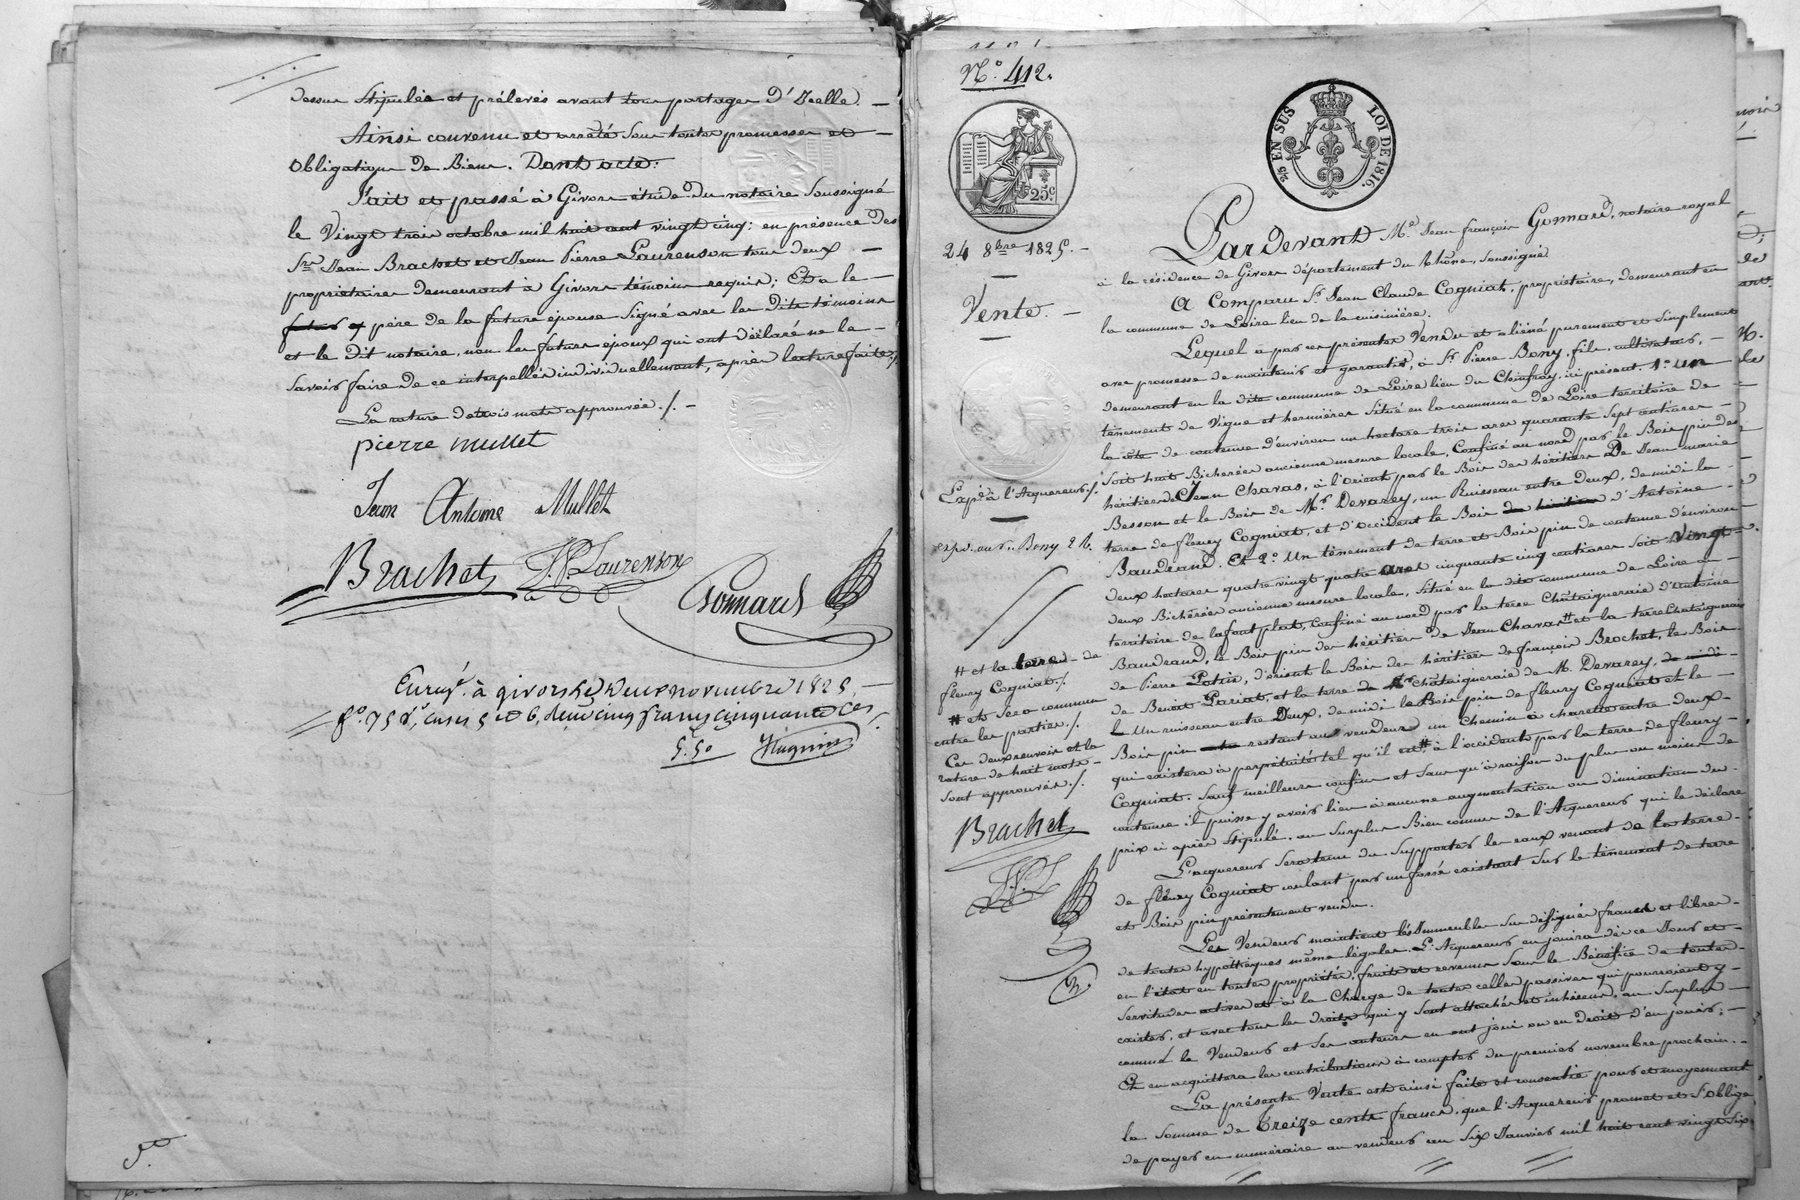 dessus Stipulés et prélevés avant tous partages d'Icelle. —
Ainsi convenu et arrêté sous toutes promesses et —
Obligations de Biens. Dont acte.
Fait et passé à Givors étude du notaire Soussigné
le Vingt trois octobre mil huit cent vingt cinq: en présence des
Srs Jean Brachet et Jean Pierre Laurenson tous deux —
propriétaires demeurant à Givors témoins requis; Et a le —
père de la future épouse Signé avec les Dits témoins
et le Dit notaire, non les futurs époux qui ont déclaré ne le —
Savoir faire de ce interpellés individuellement, après lecture faite./.
La rature de trois mots approuvée ./. —
pierre mullet
Jean Antoine Mullet
Brachet J.P. Laurenson
Gomard
Enregé. à givors le deux novembre 1825, —
fo. 75 Vo, cases 5 et 6, deux cinq francs cinquante ces
5.50
No. 412.
25c
25 EN SUS LOI DE 1816.
24 8bre 1825. —
Vente. —
Par Devant Me. Jean françois Gomard, notaire royal
à la résidence de Givors département du Rhône, Soussigné
A Comparu Sr. Jean Claude Cogniat, propriétaire, demeurant en
la commune de Loire lieu de la cuisinière.
Lequel a par ces présentes Vendu et aliéné purement et Simplement
avec promesse de maintenir et garantir, à Sr. Pierre Bony, fils, cultivateur, —
demeurant en la dite commune de Loire lieu du Chinfray, ici présent. 1o. un
tènement de Vigne et hermières Situé en la commune de Loire territoire de —
la côte de contenue d'environ un hectare trois ares quarante Sept centiares —
Soit huit Bicherées ancienne mesure locale, Confiné au nord par le Bois pin des
héritiers de Jean Chavas, à l'orient par le Bois des héritiers De Jean marie
Besson et le Bois de Mr. Devarey, un Ruisseau entre deux, de midi la
terre de fleury Cogniat, et d'occident le Bois d'Antoine
Baudrand. Et 2o. Un tènement de terre et Bois pin de contenue d'environ
deux hectares quatre vingt quatre ares cinquante cinq centiares soit Vingt
deux Bicherées ancienne mesure locale, Situé en la dite commune de Loire
territoire de lafont plat, Confiné au nord par la terre Châtaigneraie d'antoine
Baudrand, le Bois pin des héritiers de Jean Chavas # et la terre Chataigneraie
de Pierre Patin, d'orient le Bois des héritiers de françois Brochet, le Bois
de Benoit Pariat, et la terre Châtaigneraie de M. Devarey,
Un ruisseau entre Deux, de midi le Bois pin de fleury Cogniat et le —
Bois pin restant au vendeur un Chemin à charette entre deux —
qui existera à perpétuité tel qu'il est # à l'occident par la terre de fleury —
Cogniat. Sauf meilleurs confins et Sans qu'à raison du plus ou moins de
contenue il puisse y avoir lieu à aucune augmentation ou diminution du
prix ci après Stipulé. au Surplus Bien connu de l'Acquereur qui le déclare
L'acquereur Sera tenu de Supporter les eaux venant de la terre —
de fleury Cogniat coulant par un fossé existant sur le tènement de terre
et Bois pin présentement vendu.
Les Vendeurs maintient les Immeubles Sus désignés francs et libres —
de toutes hypothèques même légales. L'Acquereur en jouira dès ce Jour et —
en l'état en toutes propriétés, fruits et revenus Sous le Bénéfice de toutes
Servitudes actives et à la Charge de toutes celles passives qui pourroient y —
exister, et avec tous les droits qui y Sont attachés et inhérens, au Surplus —
comme le Vendeur et Ses auteurs en ont joui ou eu Droit d'en jouir; —
Et en acquittera les contributions à compter du premier novembre prochain. —
La présente Vente est ainsi faite et consentie pour et moyennant
la Somme de treize cents francs, que l'Acquereur promet et S'oblige
de payer en numéraire au vendeur au Six Janvier mil huit cent vingt Six
à l'Acquereur ./.
Bony
# et la terre de
fleury Cogniat ./.
# et Sera commun
entre les parties ./.
Ces deux renvois et la
rature de huit mots —
Sont approuvés ./.
Brachet
J.P.L